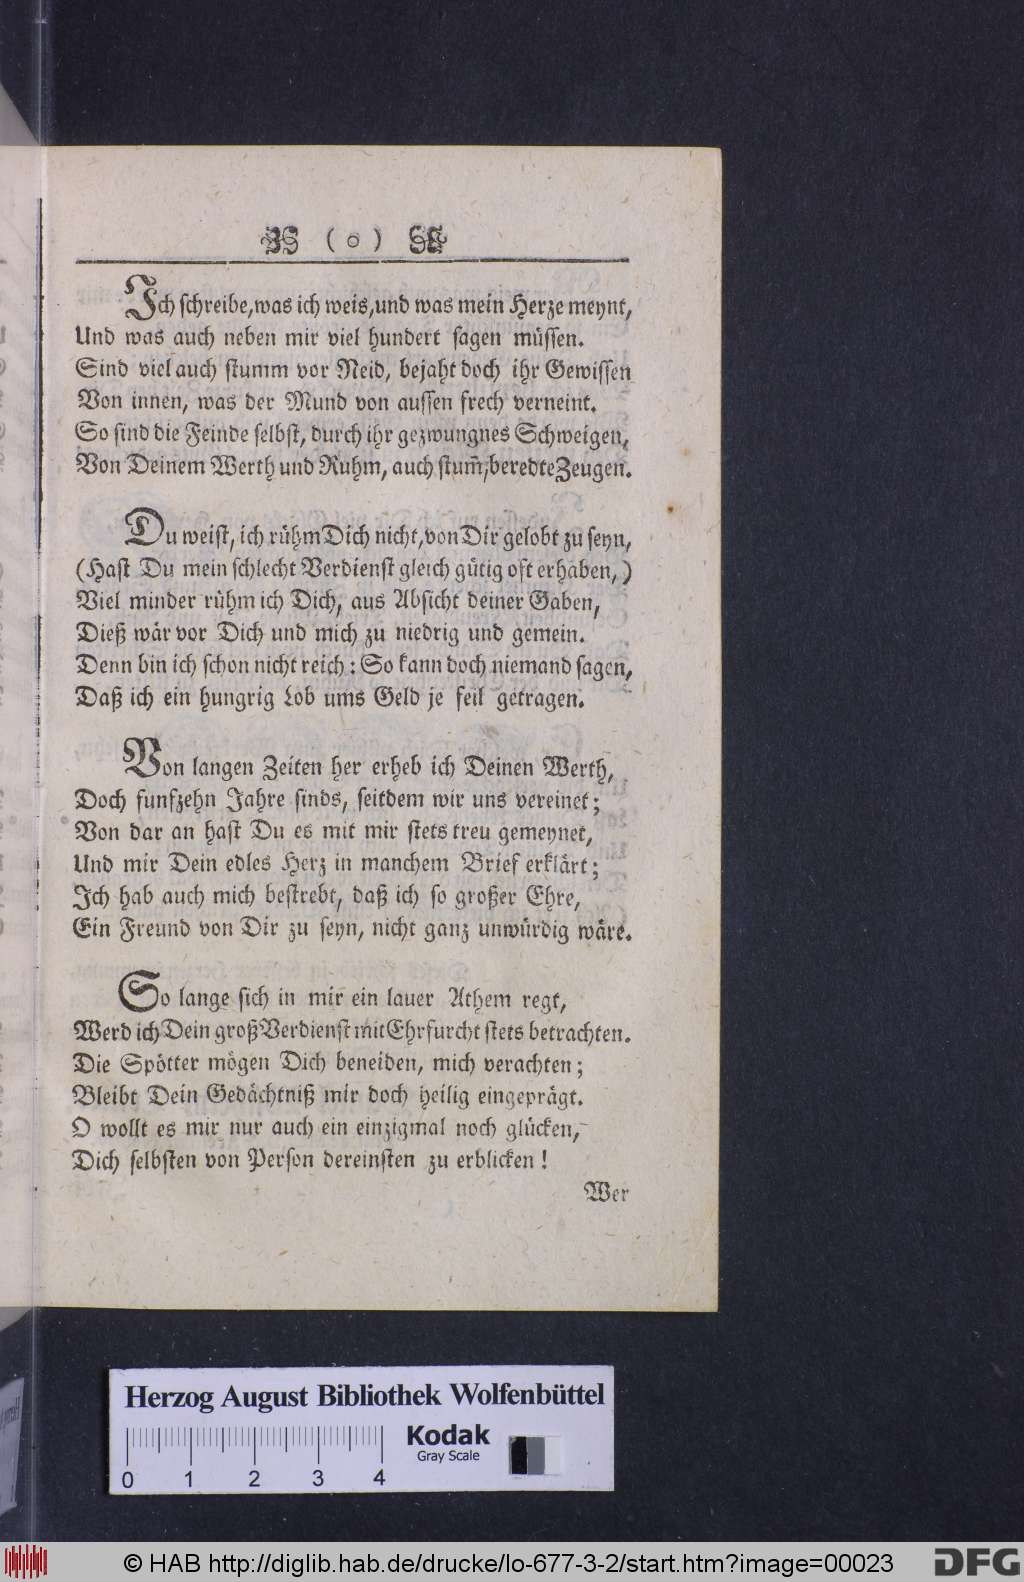 ( o )
Ich schreibe, was ich weis, und was mein Herze meynt,
Und was auch neben mir viel hundert sagen müssen.
Sind viel auch stumm vor Neid, bejaht doch ihr Gewissen
Von innen, was der Mund von aussen frech verneint.
So sind die Feinde selbst, durch ihr gezwungnes Schweigen,
Von Deinem Werth und Ruhm, auch stum̃, beredte Zeugen.
Du weist, ich rühm Dich nicht, von Dir gelobt zu seyn,
(Hast Du mein schlecht Verdienst gleich gütig oft erhaben,)
Viel minder rühm ich Dich, aus Absicht deiner Gaben,
Dieß wär vor Dich und mich zu niedrig und gemein.
Denn bin ich schon nicht reich: So kann doch niemand sagen,
Daß ich ein hungrig Lob ums Geld je feil getragen.
Von langen Zeiten her erheb ich Deinen Werth,
Doch funfzehn Jahre sinds, seitdem wir uns vereinet;
Von dar an hast Du es mit mir stets treu gemeynet,
Und mir Dein edles Herz in manchem Brief erklärt;
Ich hab auch mich bestrebt, daß ich so großer Ehre,
Ein Freund von Dir zu seyn, nicht ganz unwürdig wäre.
So lange sich in mir ein lauer Athem regt,
Werd ich Dein groß Verdienst mit Ehrfurcht stets betrachten.
Die Spötter mögen Dich beneiden, mich verachten;
Bleibt Dein Gedächtniß mir doch heilig eingeprägt.
O wollt es mir nur auch ein einzigmal noch glücken,
Dich selbsten von Person dereinsten zu erblicken!
Wer
Herzog August Bibliothek Wolfenbüttel
Kodak
Gray Scale
0 1 2 3 4
© HAB http://diglib.hab.de/drucke/lo-677-3-2/start.htm?image=00023
DFG